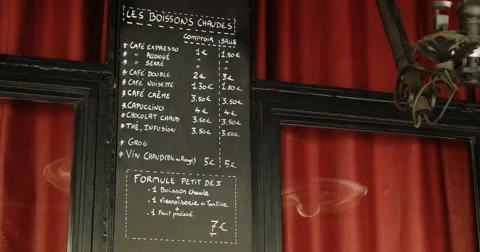 LES BOISSONS CHAUDES
COMPTOIR SALLE
* CAFÉ EXPRESSO 1€ 1.50€
* " ALLONGÉ " "
* " SERRÉ " "
* CAFÉ DOUBLE 2€ 3€
* CAFÉ NOISETTE 1.30€ 1.80€
* CAFÉ CRÈME 3.50€ 3.50€
* CAPUCCINO 4€ 4€
* CHOCOLAT CHAUD 3.50€ 3.50€
* THÉ, INFUSION 3.50€ 3.50€
* GROG
* VIN CHAUD (Blc ou Rouge) 5€ 5€
FORMULE PETIT DEJ
. 1 Boisson chaude
+
. 1 Viennoiserie ou Tartine
+
. 1 Fruit pressé
7€